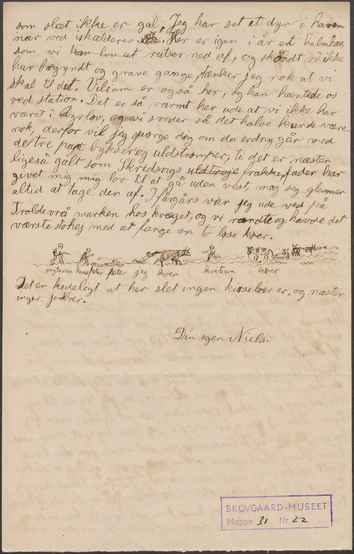 som slet ikke er gal. Jeg har set et dyr i haven
nær ved iskælderen. Her er igen i år ed bakken
som vi kan en rutser ned af, og skøndt vi ikke
har begyndt og grave gange, tænker jeg nok at vi
skal til det. Vilsam er også her, og han hæntede os
ved station. Det er så varmt her ude at vi ikke har
været i dyrlov, og vi sveder så det halve kunde være
nok, derfor vil jeg spørge dig om du endnu går med
de tre par bykser og uldstromper, ti det er næsten
ligeså galt som Skridsnys uldtrøje frakke, fader har
givet mig lov til at gå uden vest, mag jeg glemmer
altid at tage den af. I forgårs var jeg ude ved på
Traldevrå marken hos kvæget, og vi rændte og havde det
værste storhej med at fange en løse køer.
jeg køer kristian køer
Det er kedeligt at her slet ingen kirsebær er, og næsten
ingen jobær.
Din egen Niels.
SKOVGAARD-MUSEET
Mappe 31 Nr 22